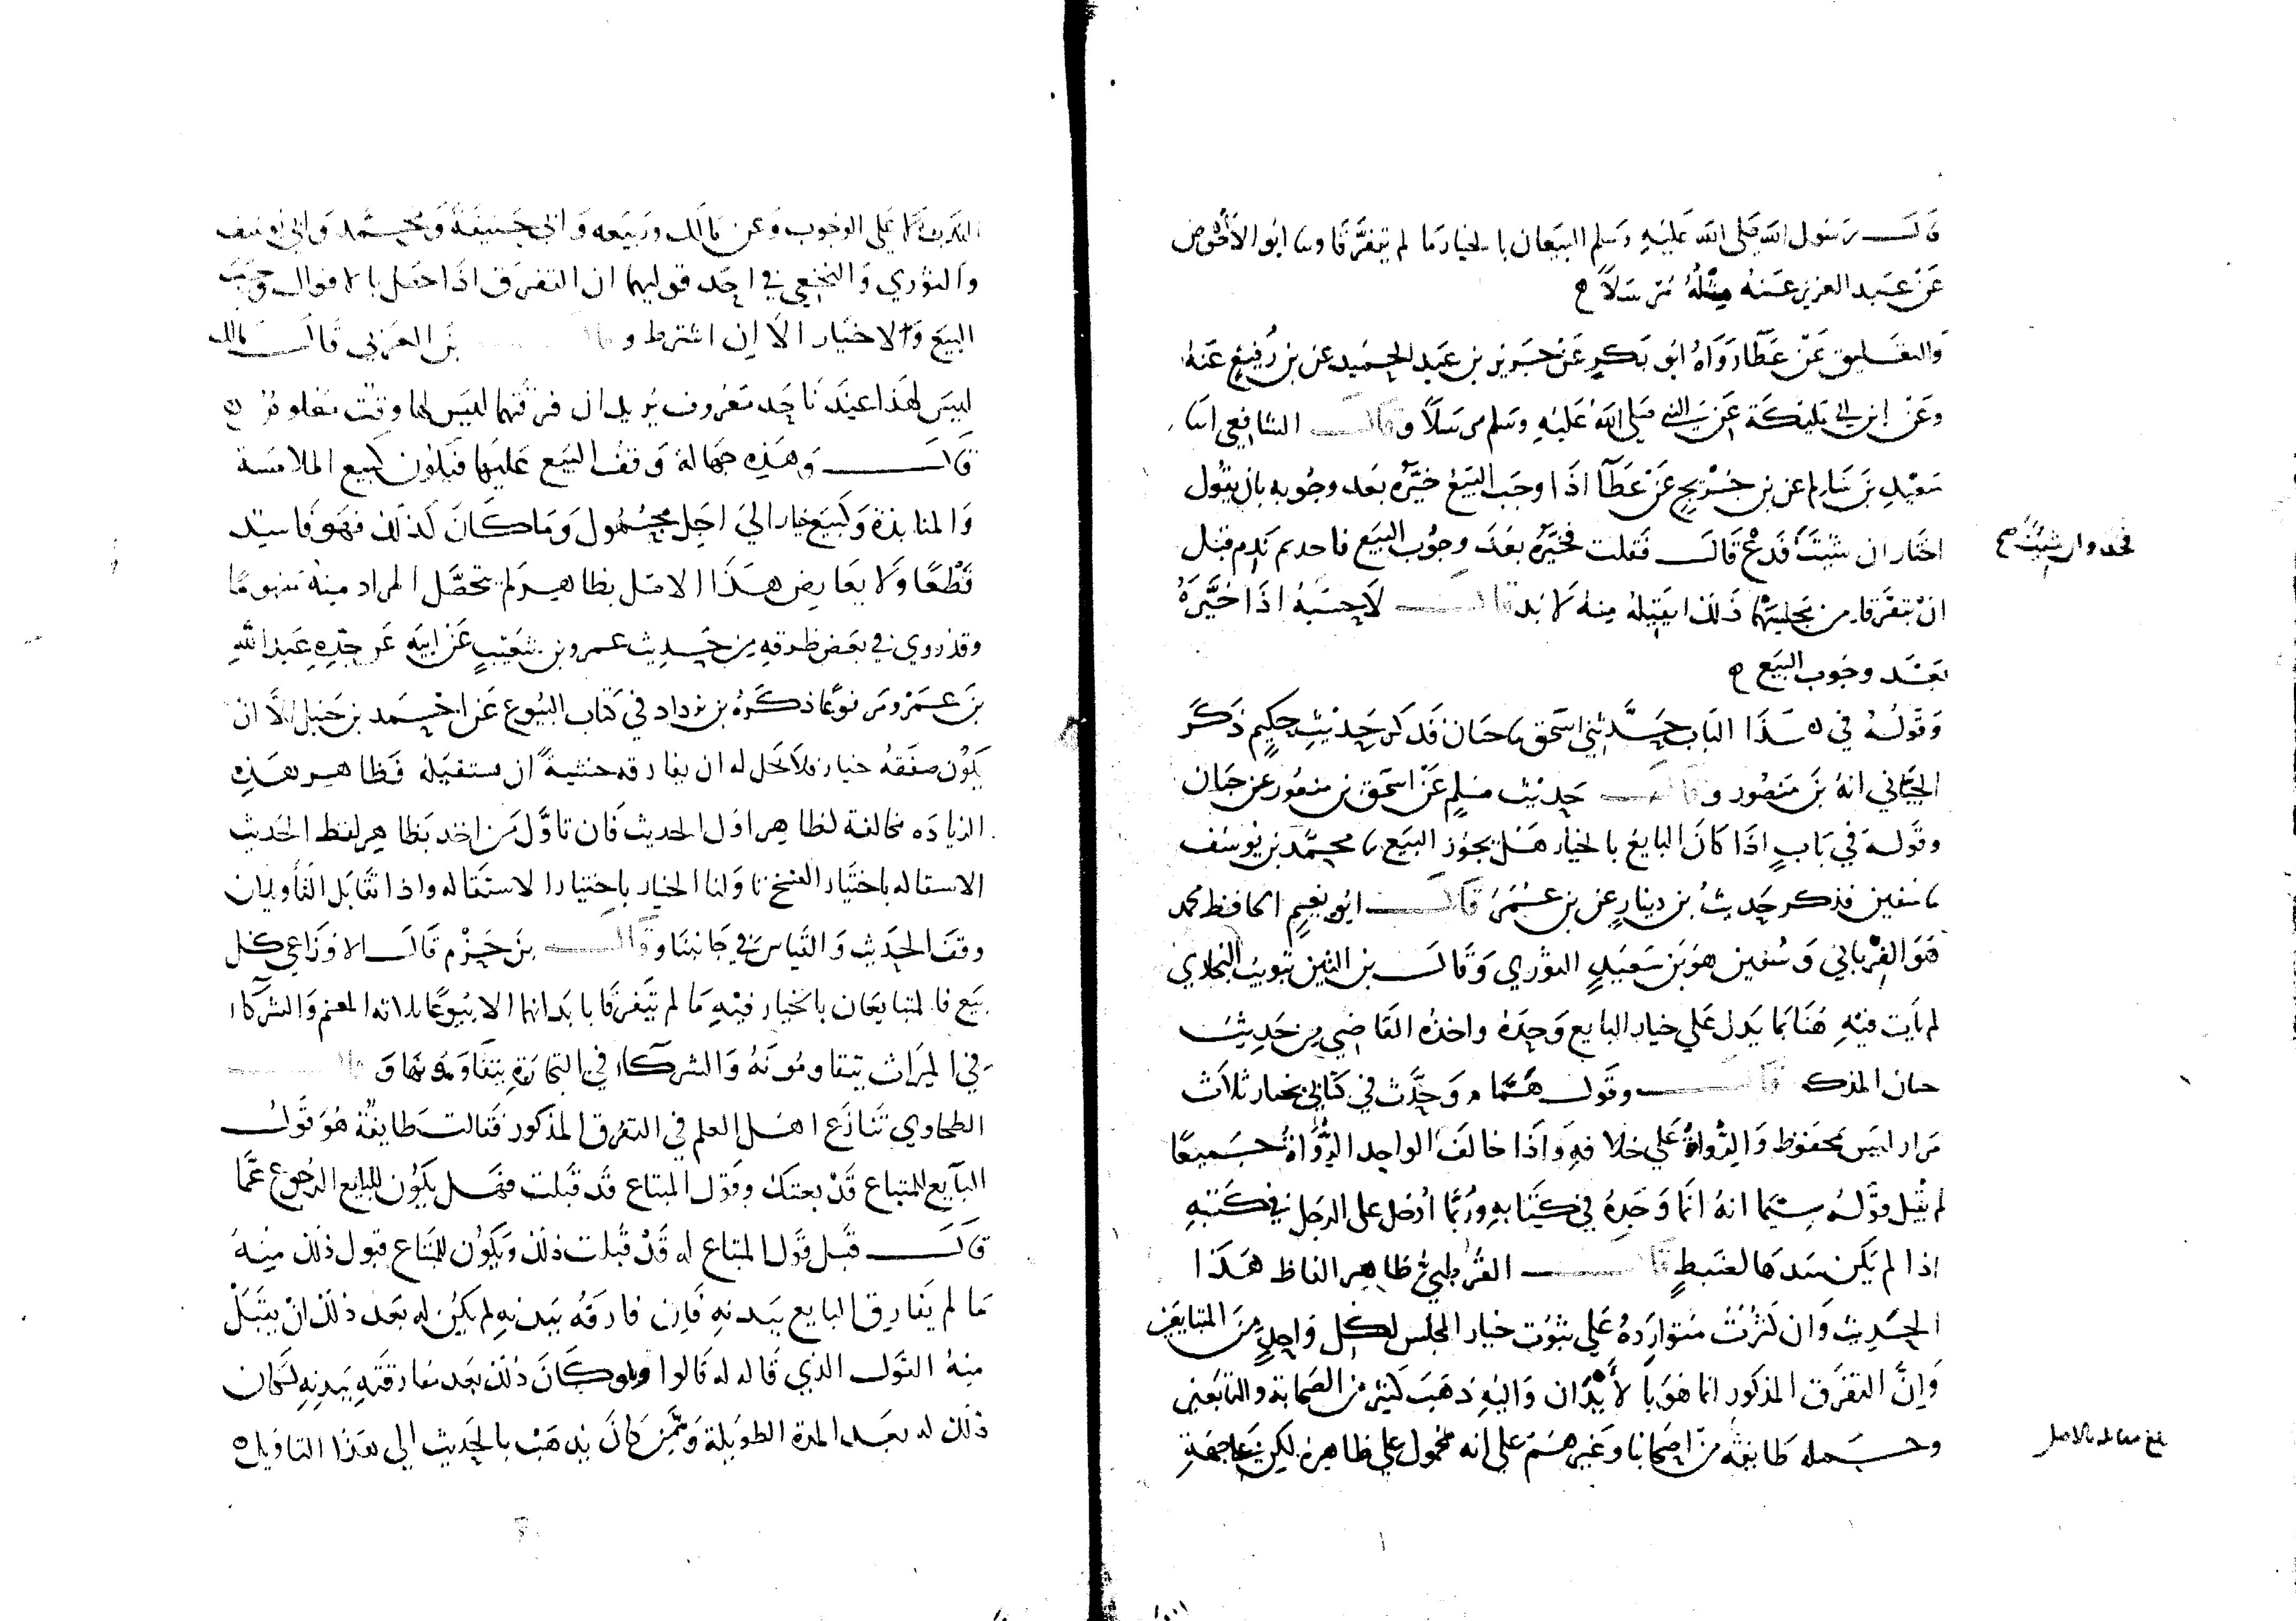 قال رسول الله صلى الله عليه وسلم البيعان بالخيار ما لم يتفرقا وسا ابو الاحوص
عن عبد العزيز عنه مثله مرسلا
والتعليق عن عطا رواه ابو بكر عن جرير بن عبد الحميد عن بن رفيع عنه
وعن ابن ابي مليكة عن النبي صلى الله عليه وسلم مرسلا وقال الشافعي اسا
سعيد بن سالم عن بن جريج عن عطا اذا وجب البيع خيره بعد وجوبه بان يقول
اختار ان شئت فدع قال فقلت فخيره بعد وجوب البيع فاحدهم ندم قبل
فخذ وان شئت صح
ان يتفرقا من مجلسهما ذلك ايقبله منه لا بد قال لا حسبه اذا خيره
بعد وجوب البيع
وقوله في هذا الباب حدثني اسحق سا حبان فذكر حديث حكيم ذكر
الجياني انه بن منصور وقال حديث مسلم عن اسحق بن منصور عن حبان
وقوله في باب اذا كان البايع بالخيار هل يجوز البيع سا محمد بن يوسف
سا سفين فذكر حديث بن دينار عن بن عمر قال ابو نعيم الحافظ محمد
هو الفريابي وسفين هو بن سعيد الثوري وقال بن التين تبويب البخاري
لم يات فيه هنا بما يدل علي خيار البايع وحده واخذه القاضي من حديث
حبان المذكور قال وقول همام وجدت في كتابي بخيار ثلاث
مرار ليس محفوظ والرواة علي خلافه واذا خالف الواحد الرواة جميعا
لم يقبل قوله سيما انه انما وجده في كتابه وربما ادخل على الرجل في كتبه
اذا لم يكن شديد الضبط قال القرطبي ظاهر الفاظ هذا
الحديث وان كثرت متواردة علي ثبوت خيار المجلس لكل واحد من المتبايعين
وان التفرق المذكور انما هو بالابدان واليه ذهب كثير من الصحابة والتابعين
وحمله طايفة من اصحابنا وغيرهم علي انه محمول علي ظاهره لكن علي جهة
بلغ مقابله بالاصل
الندب لا علي الوجوب وعن مالك وربيعه وابي حنيفة ومحمد وابي يوسف
والثوري والنخعي في احد قوليهما ان التفرق اذا حصل بالاقوال وجب
البيع والاخيار الا ان اشترط وقال بن العربي قال مالك
ليس لهذا عندنا حد معروف يريد ان فرقتهما ليس لها وقت معلوم
قال وهذه جهالة وقف البيع عليها فيكون كبيع الملامسة
والمنابذة وكبيع خيار الي اجل مجهول وما كان كذلك فهو فاسد
قطعا ولا يعارض هذا الاصل بظاهر لم يتحصل المراد منه مفهوما
وقد روي في بعض طرقه من حديث عمرو بن شعيب عن ابيه عن جده عبد الله
بن عمرو مرفوعا ذكره بن في كتاب البيوع عن احمد بن حنبل الا ان
يكون صفقه خيار فلا يحل له ان يفارقه خشية ان يستقيله فظاهر هذه
الزيادة مخالفة لظاهر اول الحديث فان تاول من اخذ بظاهر لفظ الحديث
الاستقاله باختيار الفسخ تاولنا الخيار باختيار الاستقاله واذا تقابل التاويلان
وقف الحديث والقياس في جانبنا وقال بن حزم قال الاوزاعي كل
بيع فالمتبايعان بالخيار فيه ما لم يتفرقا بابدانهما الا بيوعا ثلاثه المغنم والشركاء
في الميراث يتقاومونه والشركاء في التجارة يتقاومونها وقال
الطحاوي تنازع اهل العلم في التفرق المذكور فقالت طايفة هو قول
البايع للمتباع قد بعتك وقول المبتاع قد قبلت فهل يكون للبايع الرجوع عما
قال قبل قول المبتاع له قد قبلت ذلك ويكون للمبتاع قبول ذلك منه
ما لم يفارق البايع ببدنه فان فارقه ببدنه لم يكن له بعد ذلك ان يقبل
منه القول الذي قاله له قالوا ولو كان ذلك بعد مفارقته ببدنه لكان
ذلك له بعد المدة الطويلة وممن كان يذهب بالحديث الي هذا التاويل